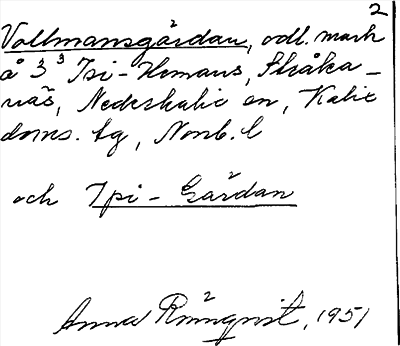 2
Vollmansgärdan, odl. mark
å 3³ Isi-Hemans, Stråka-
näs, Nederkalix sn, Kalix
doms. tg, Norrb. l
och Ipi-Gärdan
Anna Rönnqvist, 1951